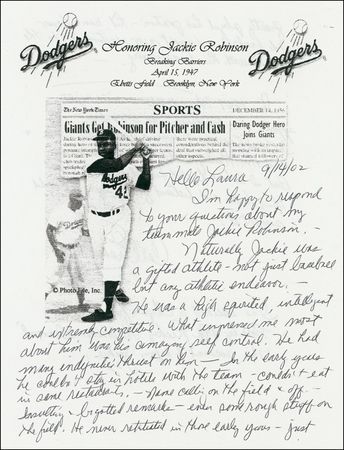 Dodgers
Honoring Jackie Robinson
Dodgers
Breaking Barriers
April 15, 1947
Ebbets Field Brooklyn, New York
The New York Times
SPORTS
DECEMBER 14, 1956
Giants Get Robinson for Pitcher and Cash
Daring Dodger Hero
Joins Giants
Dodgers
© Photo File, Inc.
9/14/02
Hello Laura
I'm happy to respond
to your questions about my
teammate Jackie Robinson. -
Naturally Jackie was
a gifted athlete - not just baseball
but any athletic endeavor. -
He was a high spirited, intelligent
and extremely competitive. What impressed me most
about him was his amazing self control. He had
many indignities thrust on him - In the early years
he couldn't stay in hotels with the team - couldn't eat
in some restaurants, - Name calling on the field & off -
Insulting - bigotted remarks - even some rough stuff on
the field. He never retaliated in those early years - just